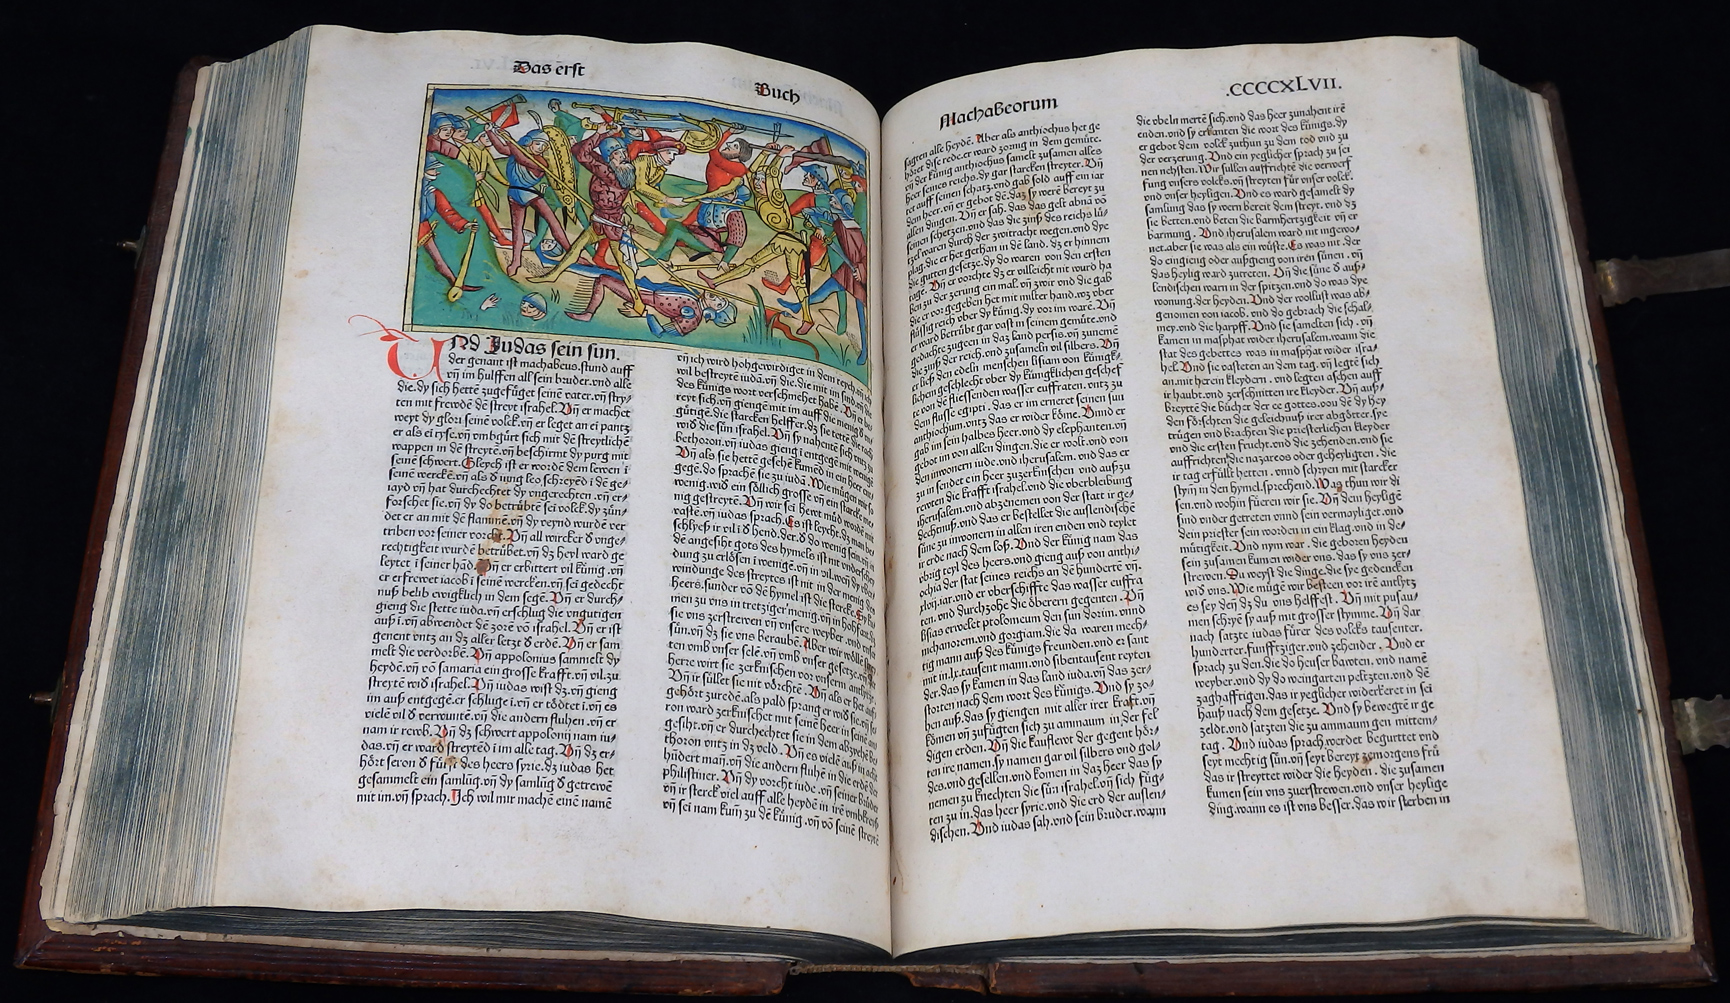 Das erst
Buch
Machabeorum
.CCCCXLVII.
UNd Judas sein sun.
der genant ist machabeus.stund auff
vñ im hulffen all sein bruder.vnd alle
die.dy sich hettē zugefüget seinē vater.vñ stry-
ten mit frewdē dē streyt israhel. Vñ er machet
weyt dy glori seinē volck.vñ er leget an ei pantz
er als ei ryse.vñ vmbgürt sich mit dē streytlichē
wappen in dē streytē.vñ beschirmt dy purg mit
seinē schwert.Gleych ist er wordē dem lewen i
seinē werckē.vñ als d iung leo schreyēd i dē ge-
iayd vñ hat durchechtet dy vngerechten.vñ er-
forschet sie.vñ dy do betrübtē sei volck.dy zün-
det er an mit dē flammē.vñ dy veynd wurdē ver
triben vor seiner vorcht.Vñ all wircker d vnge-
rechtigkeit wurdē betrübet.vñ dz heyl ward ge
leytet i seiner hād.Vñ er erbittert vil künig.vñ
er erfrewet iacob i seinē wercken.vñ sei gedecht
nuß belib ewigklich in dem segē.Vñ er durch-
gieng die stette iuda.vñ erschlug die vngutigen
auß i.vñ abwendet dē zorē vō israhel.Vñ er ist
genent vntz an dz aller letzt d erdē.Vñ er sam
melt die verdorbē.Vñ appolonius sammelt dy
heydē.vñ vō samaria ein grosse krafft.vñ vil.zu
streytē wid israhel.Vñ iudas wist dz.vñ gieng
im auß entgegē.er schluge i.vñ er tödtet i.vñ es
vielē vil d verwuntē.vñ die andern fluhen.vñ er
nam ir rewb.Vñ dz schwert appolonij nam iu-
das.vñ er ward streytēd i im alle tag.Vñ dz er-
hört seron d fürst des heers syrie.dz iudas het
gesammelt ein samlūg.vñ dy samlūg d getrewē
mit im.vñ sprach.Ich wil mir machē einē namē
vñ ich wird hohgewirdiget in dem reych.vñ ich
wil bestreytē iudā.vñ die.die mit im sind.vñ die
des künigs wort verschmehet habē.
reyt sich.vñ giengē mit im auff die menig d
gütigē.die starcken helffer.dz sie tettē die rach
wid die sün israhel.Vñ sy nahentē sich vntz zu
bethoron.vñ iudas gieng i entgegē mit wenig
Vñ als sie hettē gesehē kumēd in ein heer
gegē.do sprachē sie zu iudā.Wie mügen wir
wenig.wid ein sölich grosse vñ ein starcke
nig gestreytē.Vñ wir sei hewt müd wordē mit
vastē.vñ iudas sprach.Es ist leycht.dz man be
schlyeß ir vil i d hend.der.d do wenig sein.vñ
dē angesiht gots des hymels ist nit vnderscheyd
dung zu erlösen i wenigē.vñ in vil.
windunge des streytes ist nit in der menig des
heers.sunder vō dē hymel ist die stercke.
men zu vns in tretziger menig.vñ in hohfart.dz
sie vns zerstrewen vñ vnsere weyber.vnd vnser
sün.vñ dz sie vns beraubē.Aber wir wöllē strey
ten vmb vnser selē.vñ vmb vnser gesetze.vñ der
herre wirt sie zerknischen vor vnserm antlytz.
Vñ ir süllet sie nit vörchtē.Vñ als er het auff
gehört zuredē.als pald sprang er wid sie.vñ se
ron ward zerknischet mit seinē heer in seinē an
gesiht.vñ er durchechtet sie in dem abzyehē be
thoron vntz in dz veld.Vñ es vielē auß in acht
hūdert mañ.vñ die andern fluhē in die erd der
philistiner.Vñ dy vorcht iude.vñ seiner bruder
vñ ir sterck viel auff alle heydē in irē vmbkreyß
vñ sei nam kum zu dē künig.vñ vō seinē streytē
sagten alle heydē.Aber als anthiochus het ge
höret dise rede.er ward zornig in dem gemüte.
vñ der künig anthiochus samelt zusamen alles
heer seines reichs.dy gar starcken streyter.Vñ
tet auff seinen schatz.vnd gab sold auff ein iar
dem heer.vñ er gebot dē.daz sy werē bereyt zu
allen dingen.Vñ er sah.das das gelt abnā vō
seinen schetzen.vnd das die zinß des reichs lü-
tzel waren durch der zwitracht wegen.vnd dye
plag.die er het gethan in dē land.dz er hinnem
die gutten gesetze.dy do waren von den ersten
tage.Vñ er vorchte dz er villeicht nit wurd ha
ben zu der zerung ein mal.vñ zwir vnd die gab
die er vor gegeben het mit milter hand.wz vber
flüssig reich vber dy künig.dy vor im warē.Vñ
er ward betrübt gar vast in seinem gemüte.vnd
gedachte zugeen in daz land persis.vñ zunemē
die zinß der reich.vnd zusameln vil silbers.Vñ
er ließ den edeln menschen lisiam von künigk-
lichem geschlecht vber dy künglichen geschef
te von de fliessenden wasser euffraten.vntz zu
dem flusse egipti.das er im erneret seinen sun
anthiochum.vntz das er wider köme.Vnnd er
gab im sein halbes heer.vnd dy elephanten.vñ
gebot im von allen dingen.die er wolt.vnd von
den inwonern iude.vnd iherusalem.vnd das er
zu in sendet ein heer zuzerknischen vnd auß zu
rewten die krafft israhel.vnd die vberbleibung
iherusalem.vnd abzenemen von der statt ir ge-
dechtnuß.vnd das er bestellet die auslendischē
süne zu inwonern in allen iren enden vnd teylet
ir erde nach dem loß.Vnd der künig nam das
übrig teyl des heers.vnd gieng auß von anthi-
ochia der stat seines reichs an dē hundertē vñ.
xlvij.iar.vnd er vberschiffte das wasser euffra
ten.vnd durchzohe die öberern gegenten.Vñ
lisias erwelet ptolomeum den sun dorim.vnnd
nichanorem.vnd gorgiam.die da waren mech-
tig mann auß des künigs freunden.vnd er sant
mit in.lx.tausent mann.vnd sibentausent reyten
der.das sy kamen in das land iuda.vñ das zer-
storten nach dem wort des künigs.Vnd sy zo-
hen auß.das sy giengen mit aller irer krafft.vñ
kömen vñ zufügten sich zu ammaum in der fel
digen erden.Vñ die kaufleut der gegent hör-
ten ire namen.sy namen gar vil silbers vnd gol-
des.vnd gesellen.vnd komen in daz heer das sy
nemen zu knechten die sün israhel.vñ sich füg-
ten zu in.das heer syrie.vnd die erd der auslen-
dischen.Vnd iudas sah.vnd sein bruder.wann
die vbeln mertē sich.vnd das heer zunahent irē
enden.vnd sy erkanten die wort des künigs.dy
er gebot dem volck zuthun zu dem tod vnd zu
der verzerung.Vnd ein yeglicher sprach zu sei
nen nehsten.Wir süllen auffrichtē die verwerf
fung vnsers volcks.vñ streyten für vnser volck
vnd vnser heyligen.Vnd es ward gesamelt dy
samlung das sy wern bereit dem streyt.vnd dz
sie betten.vnd beten die barmhertzigkeit vñ er
barmung.Vnd iherusalem ward nit ingewo-
net.aber sie was als ein wüste.Es was nit.der
do eingieng oder außgieng von iren sünen.vñ
das heylig ward zutreten.Vñ die süne d auß-
lendischen warn in der spitzen.vnd do was dye
wonung.der heyden.Vnd der wollust was ab-
genomen von iacob.vnd do gebrach die schal-
mey.vnd die harpff.Vnd sie samelten sich.vñ
kamen in masphat wider iherusalem.wann die
stat des gebettes was in masphat wider isra-
hel.Vnd sie vasteten an dem tag.vñ legtē sich
an.mit herein kleydern.vnd legten aschen auff
ir haubt.vnd zerschnitten ire kleyder.Vñ auß-
breytten die bücher der ee gottes.von dē dy hey
den forschten die geleichnuß irer abgötter.sye
trügen vnd brachten die priesterlichen kleyder
vnd die ersten frucht.vnd die zehenden.vnd sie
auffrichten die nazareos oder geheyligten.die
ir tag erfüllt hetten.vnnd schryen mit starcker
stym in den hymel.sprechend.Was thun wir di
sen.vnd wohin fueren wir sie.Vñ dein heylige
sind vnder getreten vnnd sein vermayliget.vnd
dein priester sein worden in ein klag.vnd in de-
mütigkeit.Vnd nym war.die geboren heyden
sein zusamen kumen wider vns.das sy vns zer-
strewen.Du weyst die dinge.die sye gedencken
wid vns.Wie mügē wir besteen vor irē antlytz
es sey den dz du vns helffest.Vñ mit pusau-
men schryē sy auß mit grosser stymme.Vñ dar
nach satzte iudas fürer des volcks tausenter.
hunderter.funfftziger.vnd zehender.Vnd er
sprach zu den.die do heuser bawten.vnd namē
weyber.vnd dy do weingarten peltzten.vnd dē
zaghafftigen.das ir yeglicher widerkeret in sei
hauß nach dem gesetze.Vnd sy bewegtē ir ge
zeldt.vnd satzten die zu ammaum gen mittem-
tag.Vnd iudas sprach.werdet begurttet vnd
seyt mechtig sün.vñ seyt bereyt zemorgens frů
das ir streyttet wider die heyden.die zusamen
kumen sein vns zuerstrewen.vnd vnser heylige
ding.wann es ist vns besser.das wir sterben in